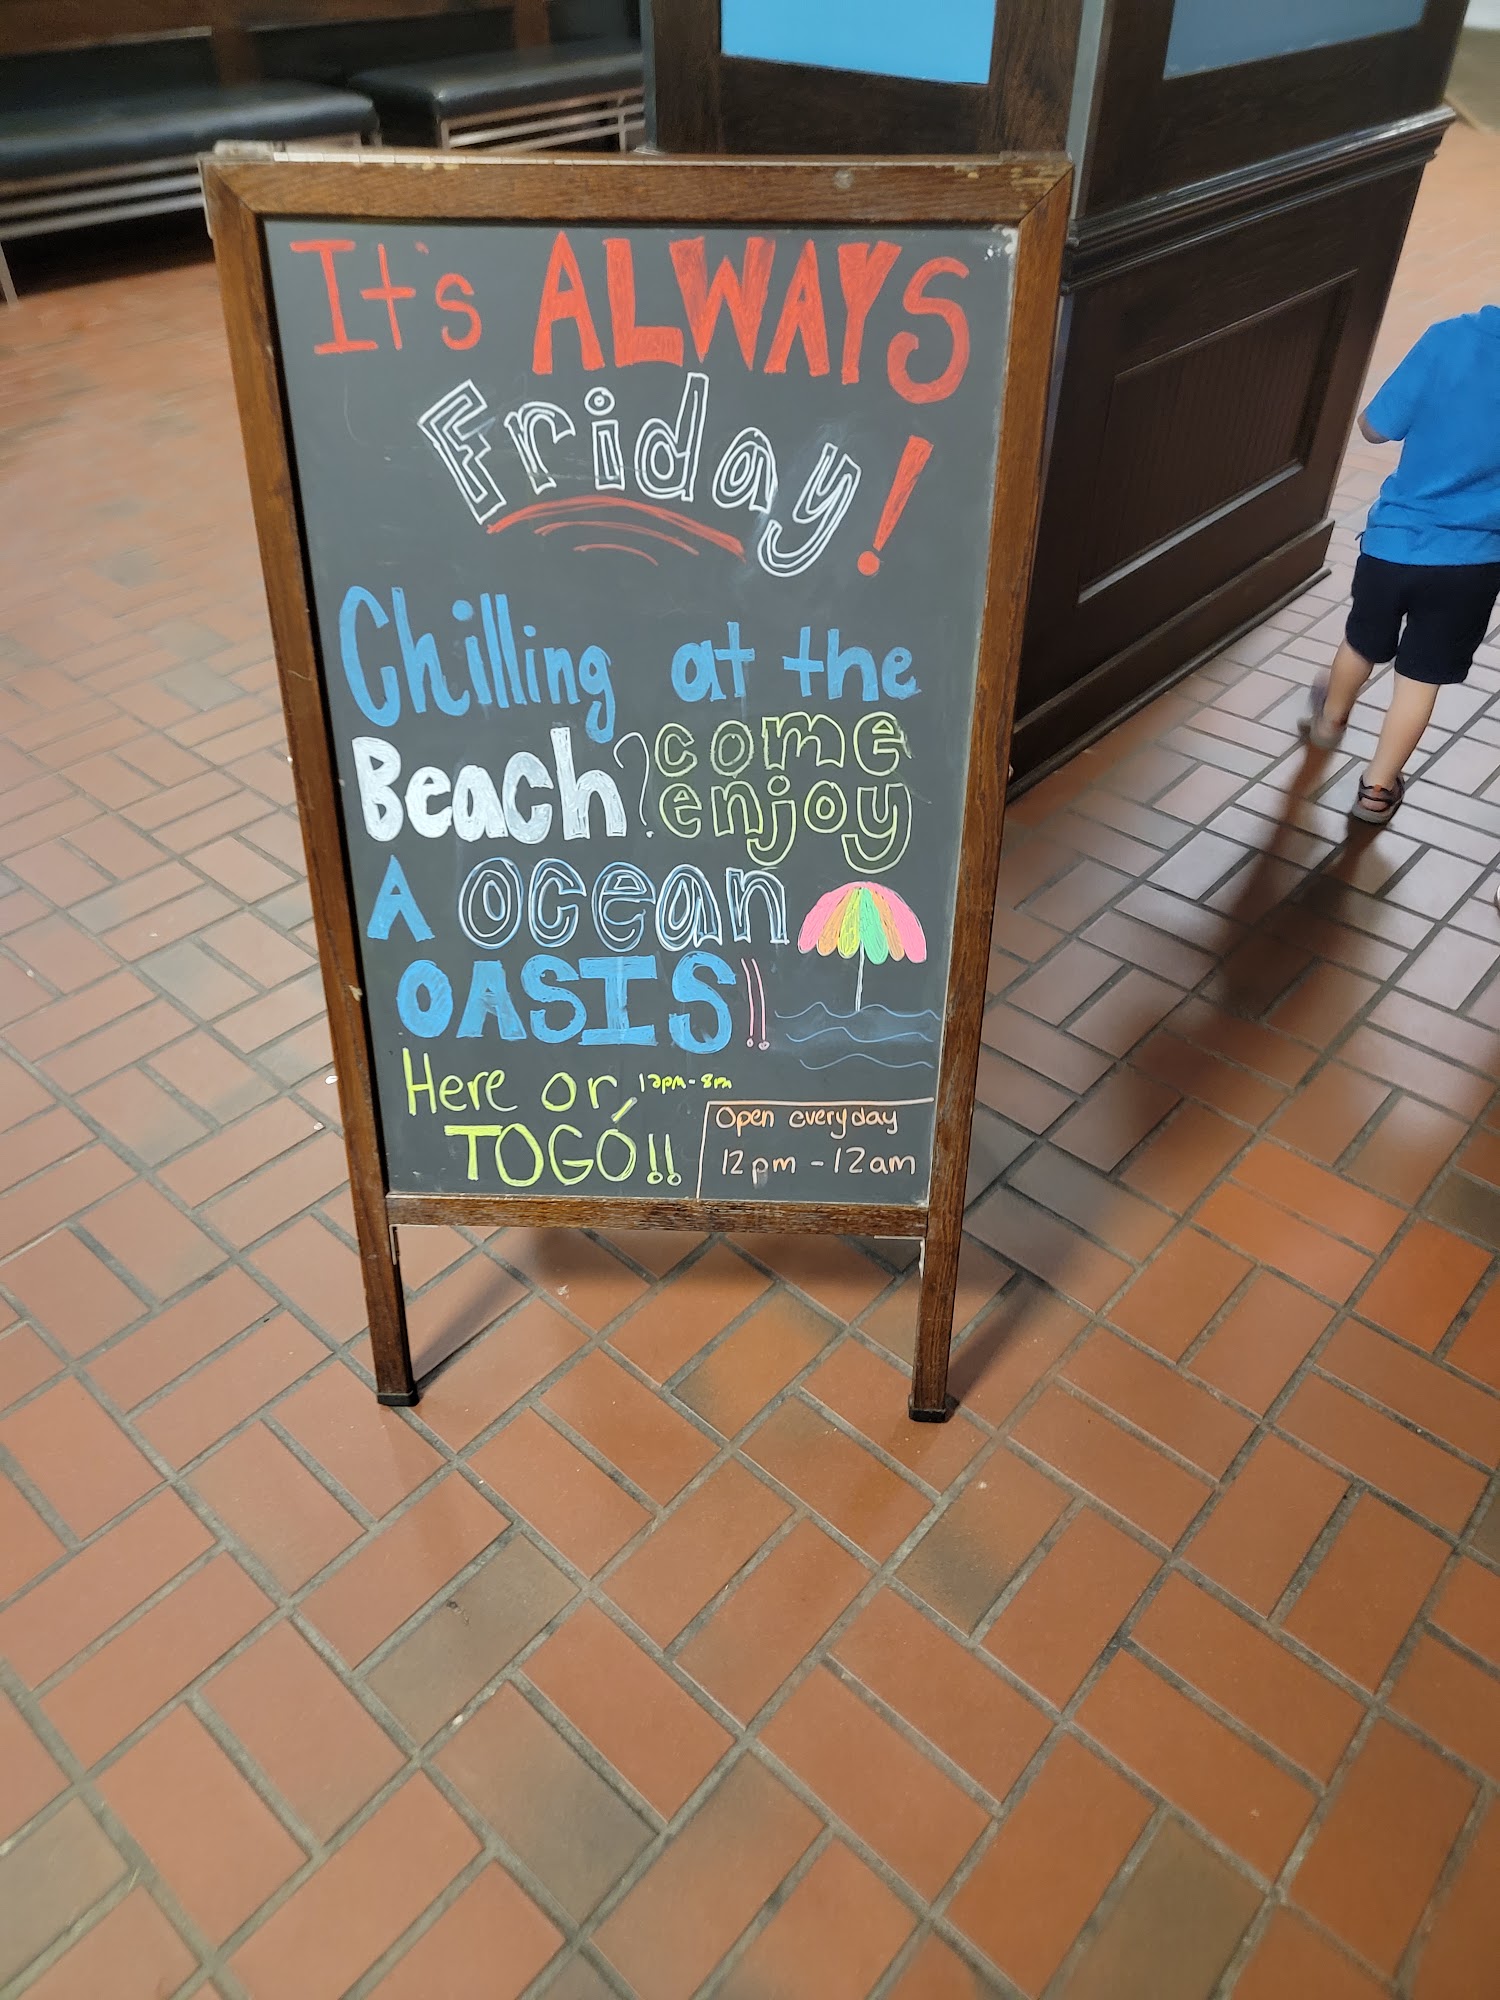 It's ALWAYS
Friday!
Chilling at the
Beach? come
enjoy
A ocean
OASIS!!
Here or 12pm-8pm
TOGO!!
Open everyday
12pm - 12am